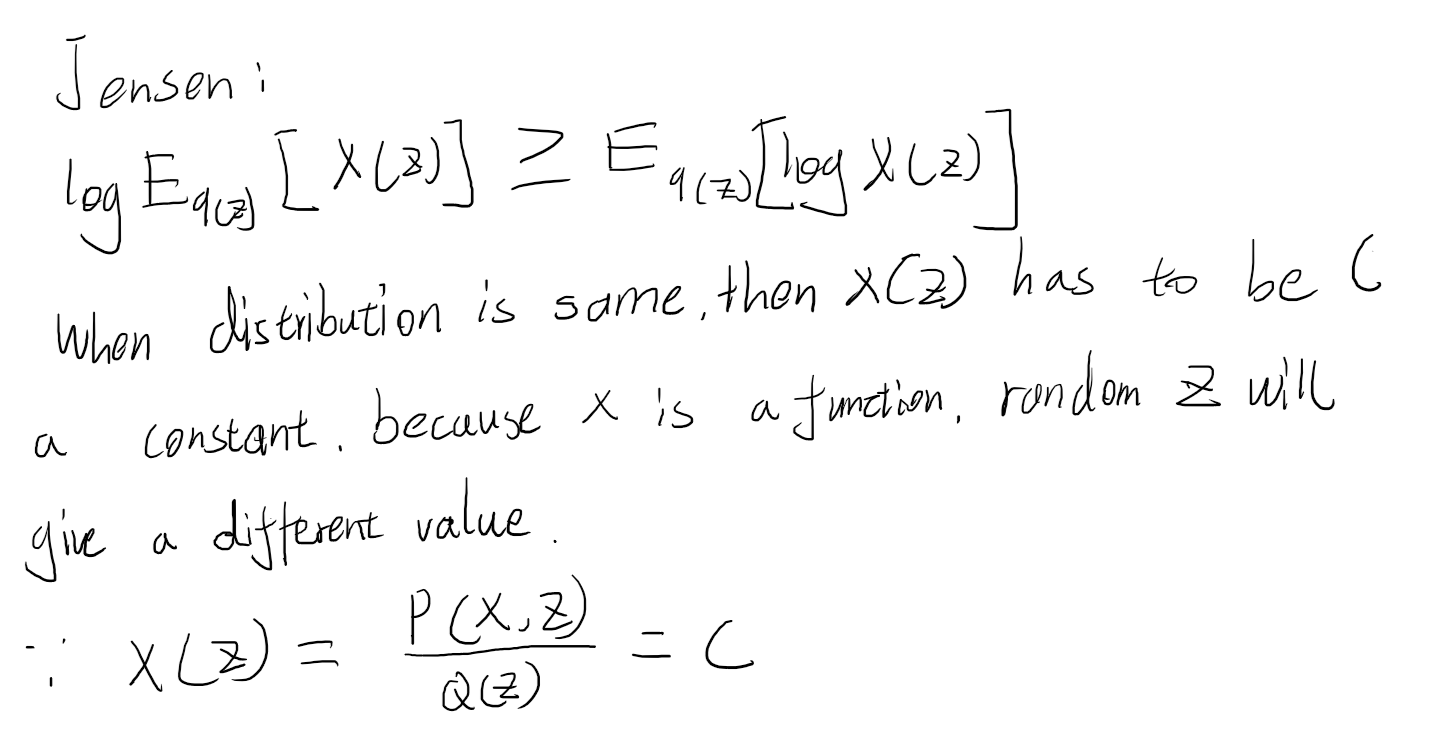 Jensen:
log E_{q(z)} [X(z)] ≥ E_{q(z)} [log X(z)]
When distribution is same, then X(z) has to be C
a constant. because X is a function, random z will
give a different value.
∵ X(z) = \frac{P(X,z)}{Q(z)} = C